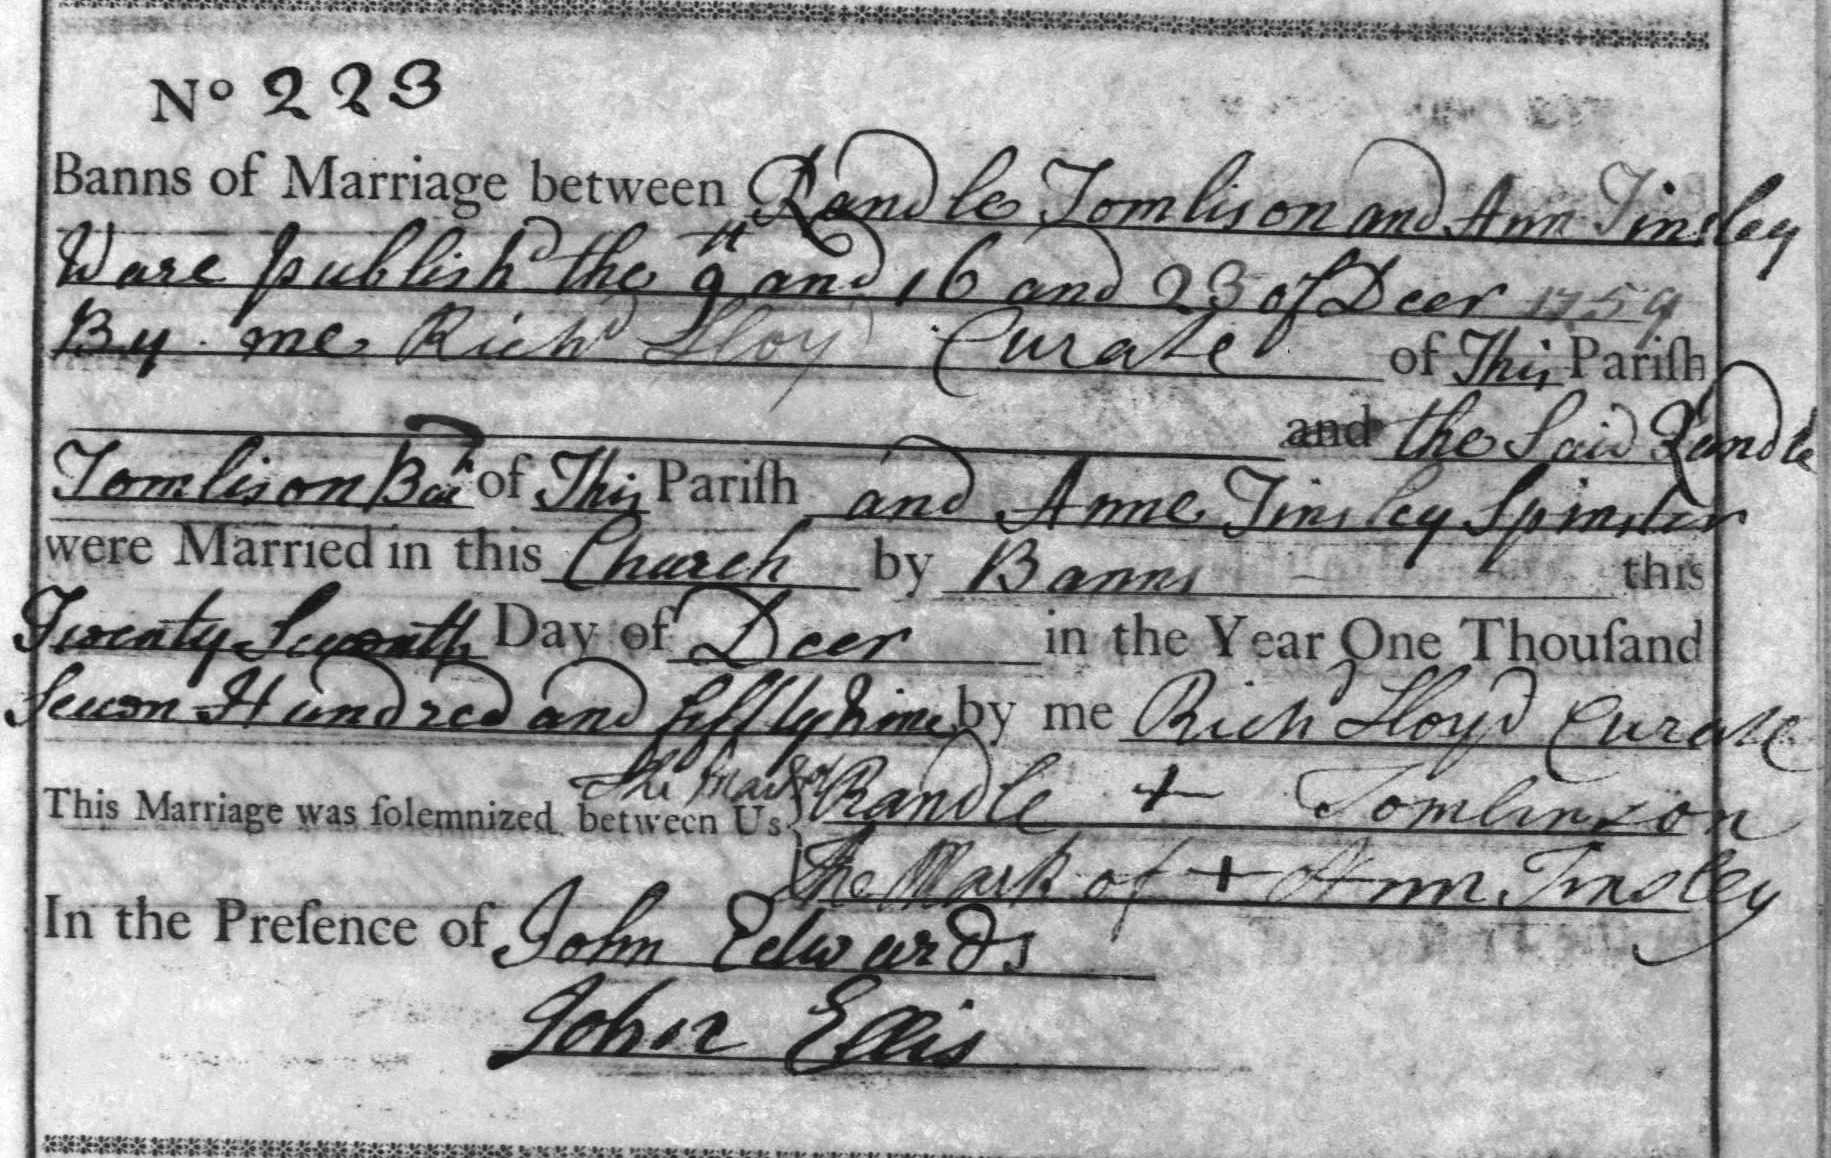 Nº 223
Banns of Marriage between Randle Tomlison and Ann Tinsley
Ware publish'd the 9th and 16 and 23 of Decr 1759
By me Richd Lloyd Curate of This Pariſh
and the Said Randle
Tomlison Bar of This Pariſh and Anne Tinsley Spinster
were Married in this Church by Banns this
Twenty Seventh Day of Decr in the Year One Thouſand
Seven Hundred and fifty Nine by me Richd Lloyd Curate
The Mark of
This Marriage was ſolemnized between Us Randle + Tomlinson
The Mark of + Ann Tinsley
In the Preſence of John Edwards
John Ellis